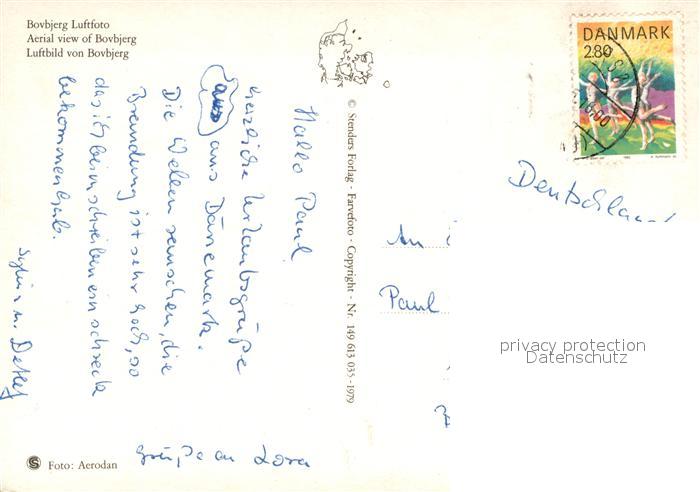 Bovbjerg Luftfoto
Aerial view of Bovbjerg
Luftbild von Bovbjerg
DANMARK
2.80
Hallo Paul
herzliche Urlaubsgrüße
aus aus Dänemark.
Die Wellen rauschen, die
Brandung ist sehr hoch, so
das ich beim schreiben ein schreck
bekommen hab.
Sylvia u. Detlef
Grüße an Lora
© Stenders Forlag - Farvefoto - Copyright - Nr. 149 613 035 - 1979
Deutschland
An
Paul
privacy protection
Datenschutz
S Foto: Aerodan